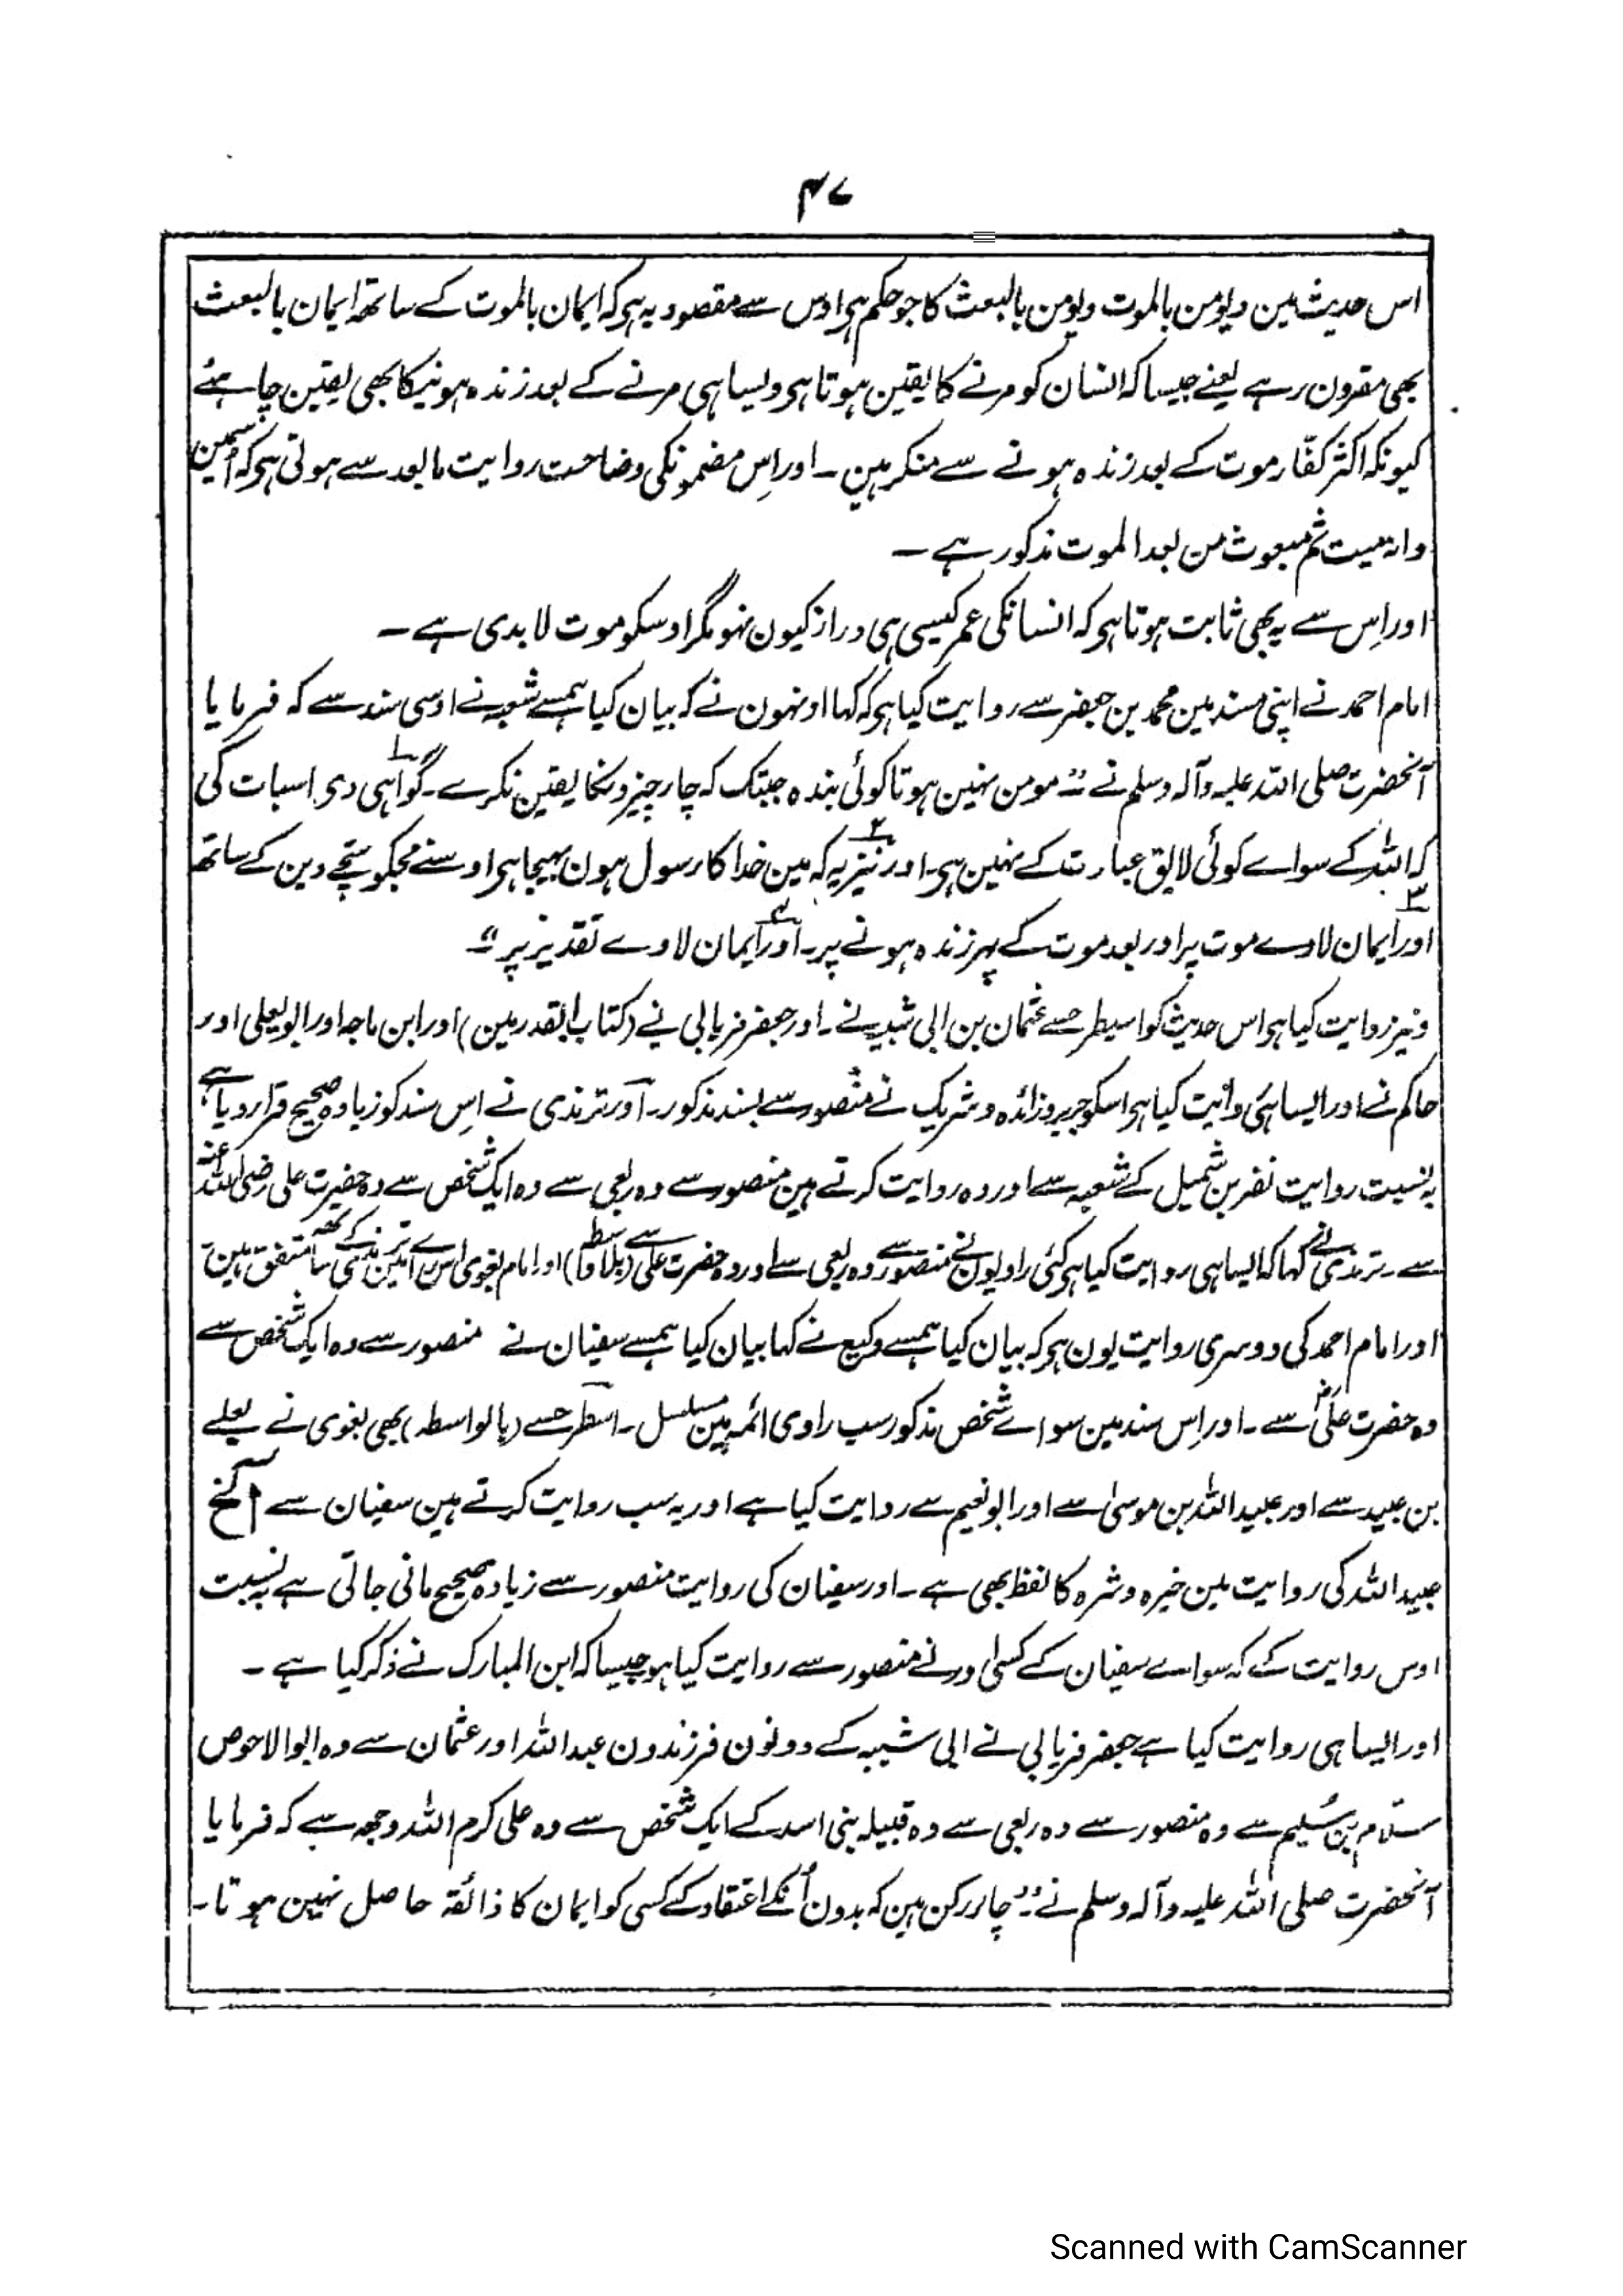 ۴۷
اس حدیث مین ویومن بالموت ویومن بالبعث کا جو حکم ہے اوس سے مقصود یہ ہے کہ ایمان بالموت کے ساتھ ایمان بالبعث
بھی مقرون رہے یعنے جیسا کہ انسان کو مرنے کا یقین ہوتا ہے ویسا ہی مرنے کے بعد زندہ ہونیکا بھی یقین چاہئے
کیونکہ اکثر کفّار موت کے بعد زندہ ہونے سے منکر ہین ۔ اور اِس مضمونکی وضاحت روایت مابعد سے ہوتی ہے کہ اُسمین
وانہ میت ثم مبعوث من بعد الموت مذکور ہے ۔
اور اِس سے یہ بھی ثابت ہوتا ہے کہ انسانکی عمر کیسی ہی دراز کیون نہو مگر اوسکو موت لابدی ہے ۔
امام احمد نے اپنی مسند مین محمد بن جعفر سے روایت کیا ہے کہ کہا اونہون نے کہ بیان کیا ہمسے شعبہ نے اوسی سند سے کہ فرمایا
آنحضرت صلی اللہ علیہ وآلہ وسلم نے ” مومن نہین ہوتا کوئی بندہ جبتک کہ چار چیزونکا یقین نکرے ۔ ۱ گواہی دی اسبات کی
کہ اللہ کے سواے کوئی لایق عبادت کے نہین ہے ۔ ۲ اور نیز یہ کہ مین خدا کا رسول ہون بھیجا ہے اوسنے مجکو سچّے دین کے ساتھ
۳ اور ایمان لاوے موت پر اور بعد موت کے پھر زندہ ہونے پر ۔ ۴ اور ایمان لاوے تقدیر پر “
ونیز روایت کیا ہے اس حدیث کو اسیطرحسے عثمان بن ابی شیبہ نے ۔ اور جعفر فریابی نے (کتاب القدر مین) اور ابن ماجہ اور ابو یعلی اور
حاکم نے اور ایسا ہی روایت کیا ہے اسکو جریر وزائدہ وشریک نے منصور سے بسند مذکور ۔ اور ترمذی نے اِس سند کو زیادہ صحیح قرار دیا ہے
بہ نسبت روایت نضر بن شمیل کے شعبہ سے اور وہ روایت کرتے ہین منصور سے وہ ربعی سے وہ ایک شخص سے وہ حضرت علی رضی اللہ عنہ
سے ۔ ترمذی نے کہا کہ ایسا ہی روایت کیا ہے کئی راویون نے منصور سے وہ ربعی سے اور وہ حضرت علی سے (بلا واسطہ) اور امام بغوی اس امر مین ترمذی کے ساتھ متفق ہین
اور امام احمد کی دوسری روایت یون ہے کہ بیان کیا ہمسے وکیع نے کہا بیان کیا ہمسے سفیان نے منصور سے وہ ایک شخص سے
وہ حضرت علیؓ سے ۔ اور اِس سند مین سواے شخص مذکور سب راوی ائمہ ہین مسلسل ۔ اسطرحسے (بالواسطہ) بھی بغوی نے یعلے
بن عبید سے اور عبید اللہ بن موسیٰ سے اور ابو نعیم سے روایت کیا ہے اور یہ سب روایت کرتے ہین سفیان سے الخ
عبید اللہ کی روایت مین خیرہ وشرہ کا لفظ بھی ہے ۔ اور سفیان کی روایت منصور سے زیادہ صحیح مانی جاتی ہے بہ نسبت
اوس روایت کے کہ سواے سفیان کے کسی اور نے منصور سے روایت کیا ہو جیسا کہ ابن المبارک نے ذکر کیا ہے ۔
اور ایسا ہی روایت کیا ہے جعفر فریابی نے ابی شیبہ کے دونون فرزندون عبد اللہ اور عثمان سے وہ ابو الاحوص
سلّام بن سُلیم سے وہ منصور سے وہ ربعی سے وہ قبیلہ بنی اسد کے ایک شخص سے وہ علی کرم اللہ وجہہ سے کہ فرمایا
آنحضرت صلی اللہ علیہ وآلہ وسلم نے ” چار رکن ہین کہ بدون اُنکے اعتقاد کے کسی کو ایمان کا ذائقہ حاصل نہین ہوتا ۔
Scanned with CamScanner